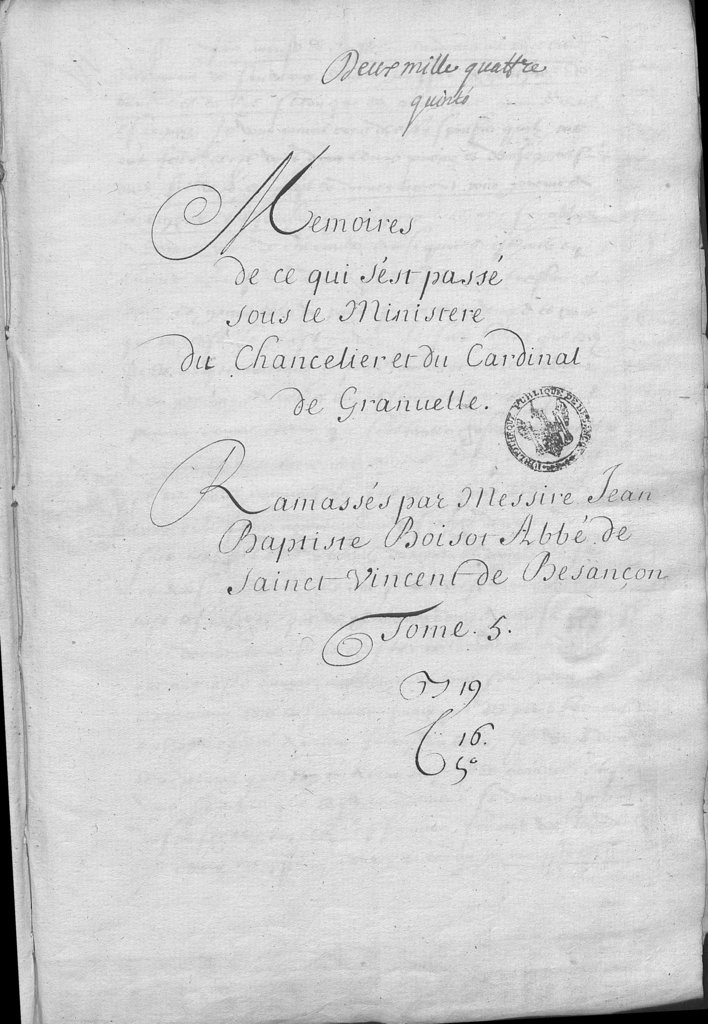 Deux mille quattre
quinto
Memoires
de ce qui s'est passé
sous le Ministere
du Chancelier et du Cardinal
de Granuelle.
BIBLIOTHEQUE PUBLIQUE DE BESANÇON
Ramassés par Messire Jean
Baptiste Boisot Abbé de
Sainct Vincent de Besançon
Tome. 5.
19
C 16.
5°